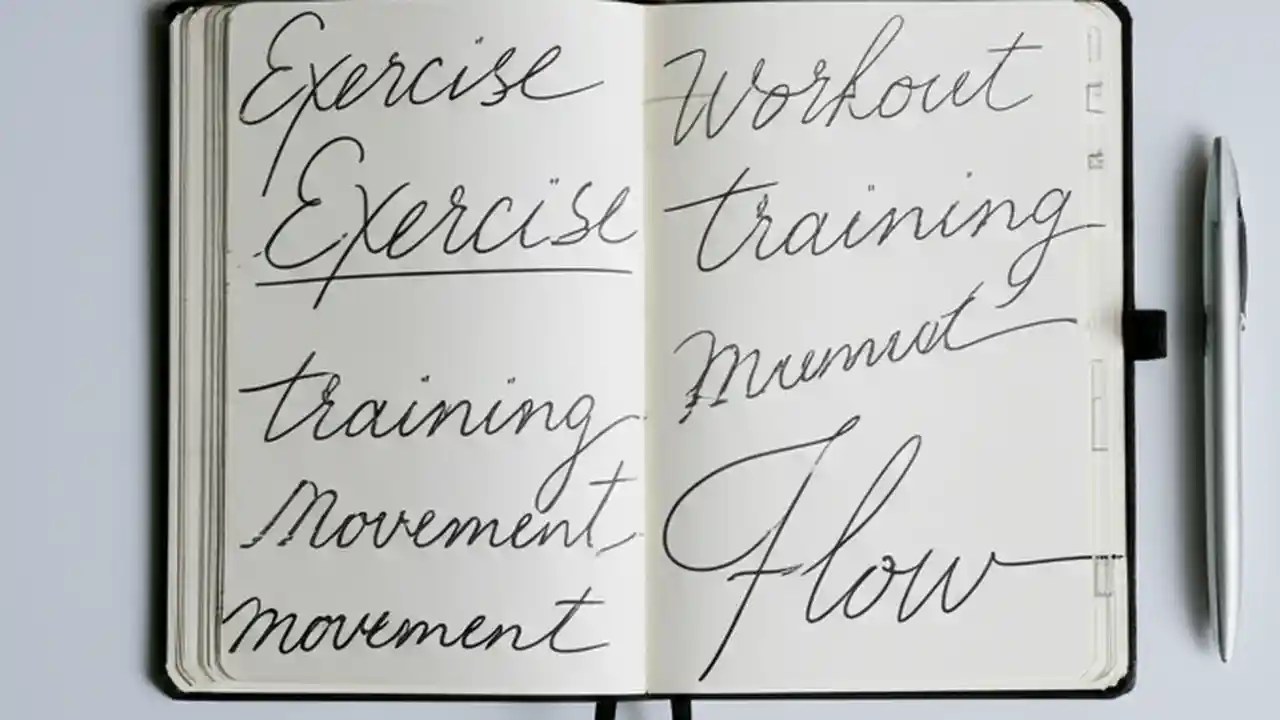 Exercise
Exercise
training
Movement
movement
Workout
training
Flow